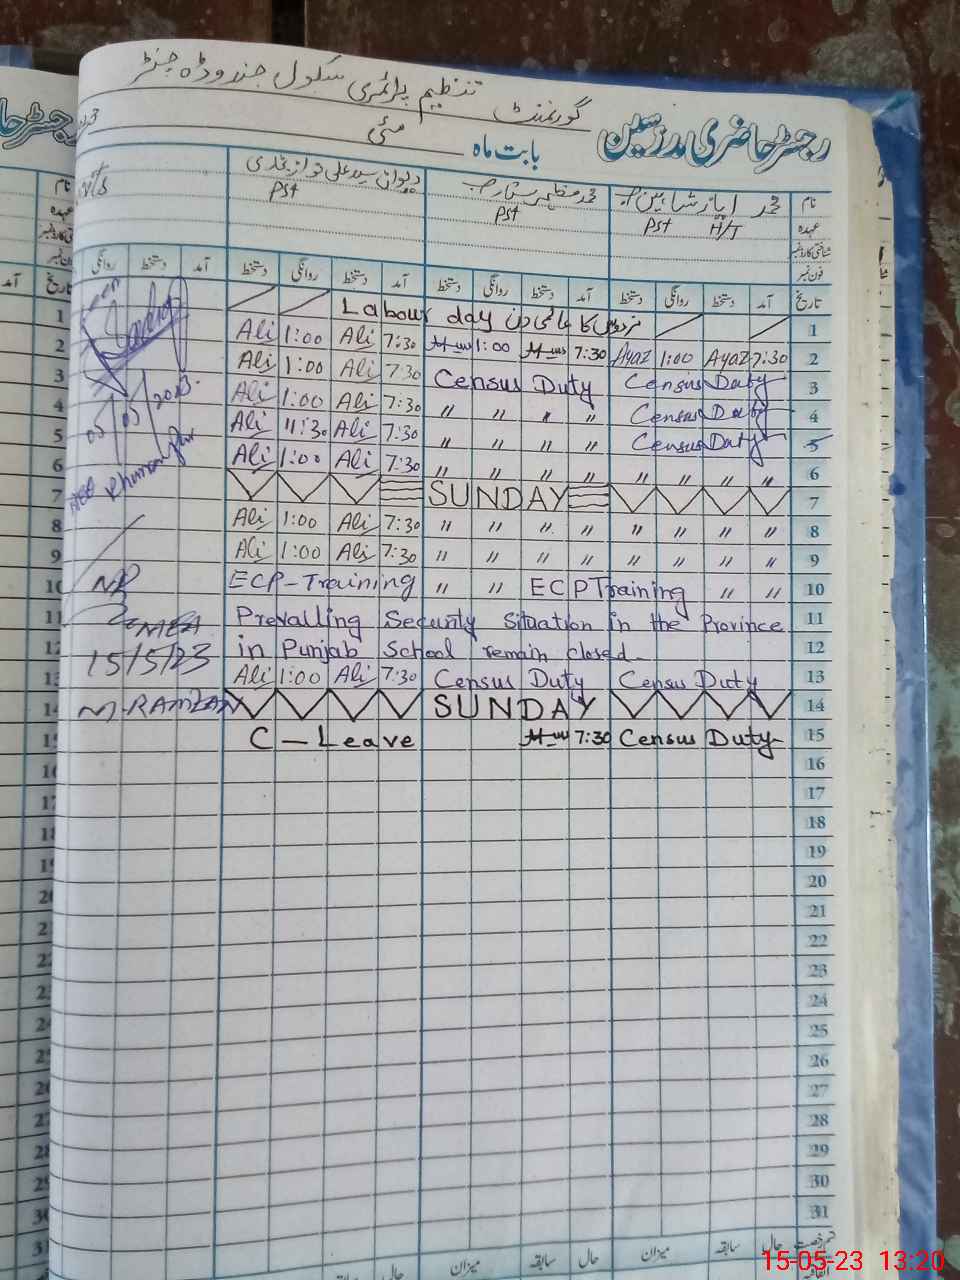 گورنمنٹ تنظیم پرائمری سکول جندووڈہ جنٹر
رجسٹر حاضری مدرسین بابت ماہ مئی
نام محمد ایاز شاہین صاحب محمد مظہر ستار صاحب دیوان سید علی نواز بخاری
عہدہ H/T PST PST PST
شناختی کارڈ نمبر
فون نمبر
تاریخ آمد دستخط روانگی دستخط آمد دستخط روانگی دستخط آمد دستخط روانگی دستخط آمد دستخط روانگی
1 Labour day مزدوروں کا عالمی دن 1
2 Ali 1:00 Ali 7:30 1:00 7:30 Ayaz 1:00 Ayaz 7:30 2
3 Ali 1:00 Ali 7:30 Census Duty Census Duty 3
4 Ali 1:00 Ali 7:30 " " " " Census Duty 4
5 Ali 11:30 Ali 7:30 " " " " Census Duty 5
6 Ali 1:00 Ali 7:30 " " " " " " " " 6
7 SUNDAY 7
8 Ali 1:00 Ali 7:30 " " " " " " " " 8
9 Ali 1:00 Ali 7:30 " " " " " " " " 9
10 ECP-Training " " ECP Training " " 10
11 Prevalling Security Situation in the Province 11
12 in Punjab School remain closed- 12
13 Ali 1:00 Ali 7:30 Census Duty Census Duty 13
14 SUNDAY 14
15 C-Leave 7:30 Census Duty 15
05/05/2023
MEA
15/5/23
M-RAMZAN
16 16
17 17
18 18
19 19
20 20
21 21
22 22
23 23
24 24
25 25
26 26
27 27
28 28
29 29
30 30
31 31
حال سابقہ میزان حال سابقہ میزان حال
15-05-23 13:20